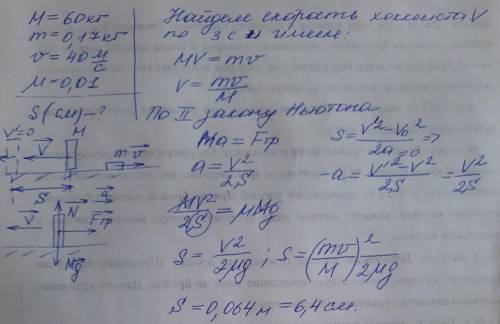 M = 60 кг
m = 0,17 кг
v = 40 м/с
μ = 0,01
S (см) - ?
Найдем скорость хоккеиста V
по ЗСИ имеем:
MV = mv
V = mv/M
По II закону Ньютона
Ma = Fтр
a = V²/2S
MV²/2S = μMg
S = V²/2μg ; S = (mv/M)² / 2μg
S = 0,064 м = 6,4 см.
S = V'² - V₀² / 2a =>
-a = V'² - V²/2S = V²/2S
= 0
V'=0
M
V
m v
S
a
N
V
Fтр
Mg